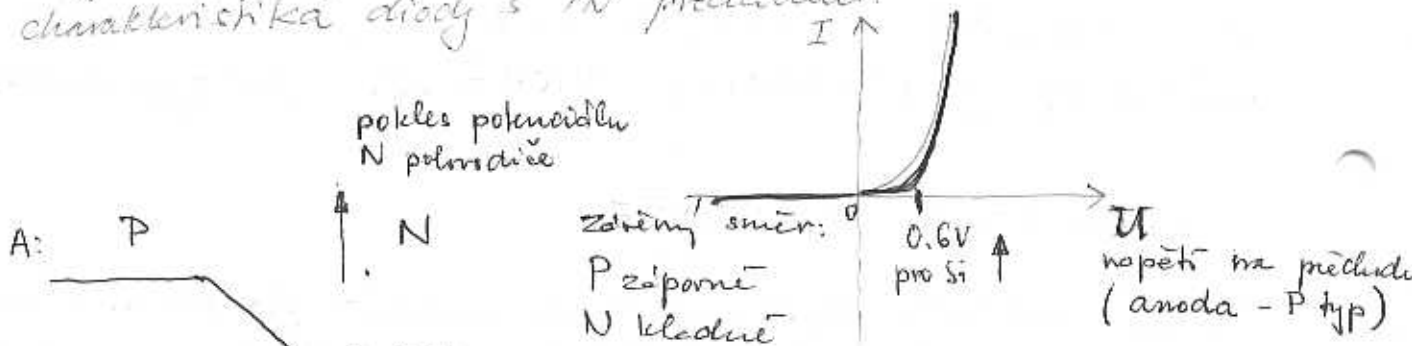 charakteristika diody s PN
I
pokles potenciálu
N polovodiče
A: P N
závěrný směr:
P záporné
N kladné
0
0.6V
pro Si
U
napětí na přechodu
(anoda - P typ)